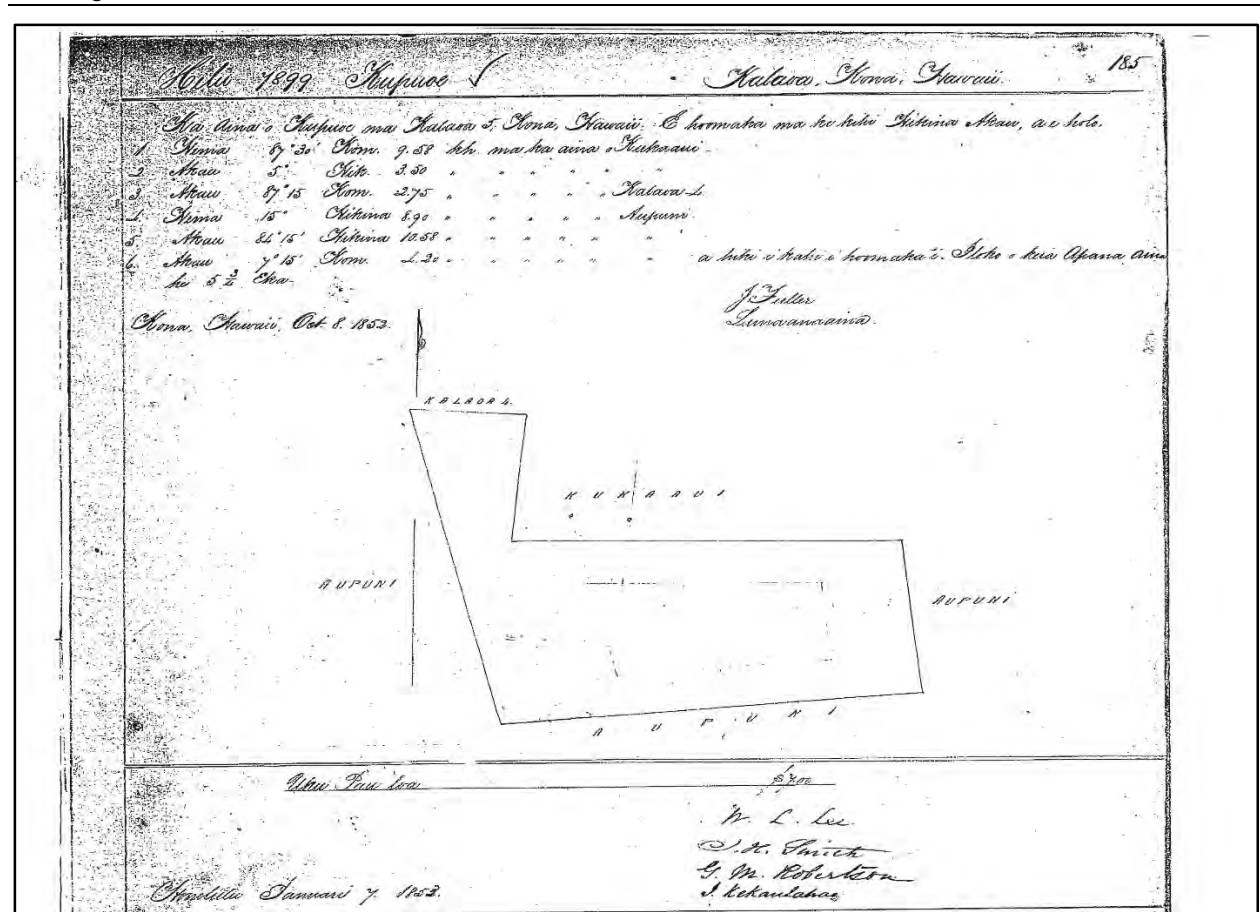 185
Helu 7899 Kupuoe ✓ Kalaoa, Kona, Hawaii.
Ka Aina o Kupuoe ma Kalaoa 5, Kona, Hawaii. E hoomaka ma ke kihi Hikina Akau, a e holo.
1 Hema 87° 30' Kom. 9.58 kh. ma ka aina o Kukaaui
2. Akau 5° Hik. 3.50 " " " " " "
3. Akau 87° 15 Kom. 2.75 " " " " " Kalaoa 4.
4. Hema 15° Hikina 8.90 " " " " " Aupuni
5. Akau 84° 15' Hikina 10.58 " " " " " "
6. Akau 7° 15' Kom. 4.20 " " " " " a hiki i kahi i hoomaka'i. Iloko o keia Apana Aina
he 5 3/4 Eka.
J. Fuller
Lunaanaaina.
Kona, Hawaii, Oct. 8. 1852.
KALAOA 4.
KUKAAUI
AUPUNI
AUPUNI
AUPUNI
Uku Pau loa $7.00
W. L. Lee
J. H. Smith
G. M. Robertson
J. Kekaulahao
Honolulu Januari 7. 1853.